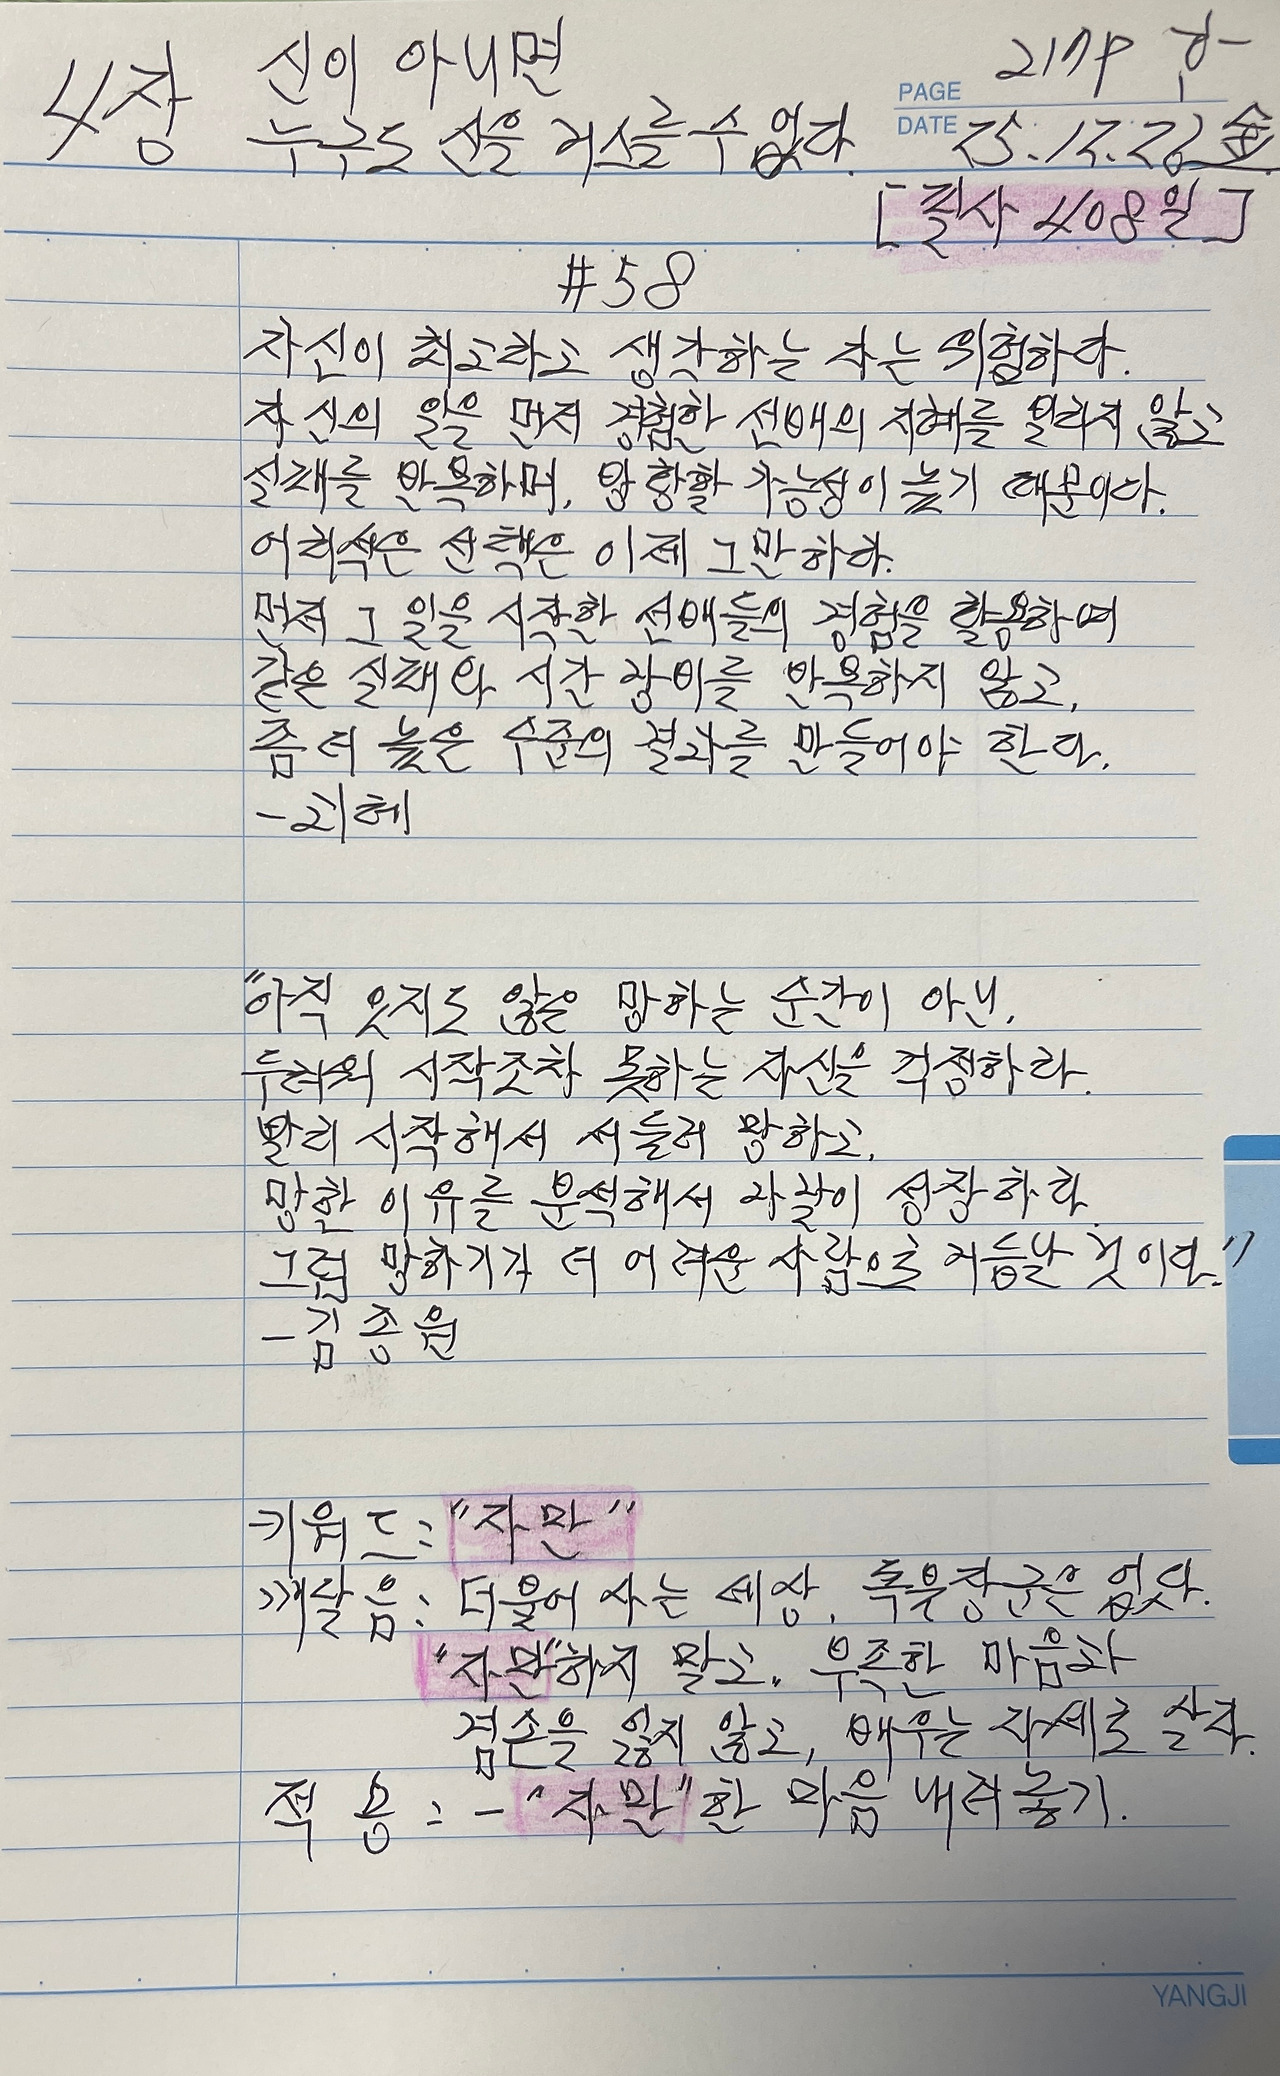 4장 신이 아니면
누구도 신을 거스를 수 없다.
PAGE 217P
DATE 25.12.26 金
[필사 408일]
#58
자신이 최고라고 생각하는 자는 위험하다.
자신의 일을 먼저 경험한 선배의 지혜를 빌리지 않고
실패를 반복하며, 방황할 가능성이 높기 때문이다.
어리석은 선택은 이제 그만하라.
먼저 그 일을 시작한 선배들의 경험을 활용하며
같은 실패와 시간 낭비를 반복하지 않고,
좀 더 높은 수준의 결과를 만들어야 한다.
-괴테
"아직 오지도 않은 망하는 순간이 아닌,
두려워 시작조차 못하는 자신을 걱정하라.
빨리 시작해서 서둘러 망하고,
망한 이유를 분석해서 성장하라.
그럼 망하기가 더 어려운 사람으로 거듭날 것이다."
-김종원
키워드: "자만"
깨달음: 더불어 사는 세상, 독불장군은 없다.
"자만"하지 말고, 부족한 마음과
겸손을 잃지 않고, 배우는 자세로 살자.
적 용: - "자만"한 마음 내려놓기.
YANGJI